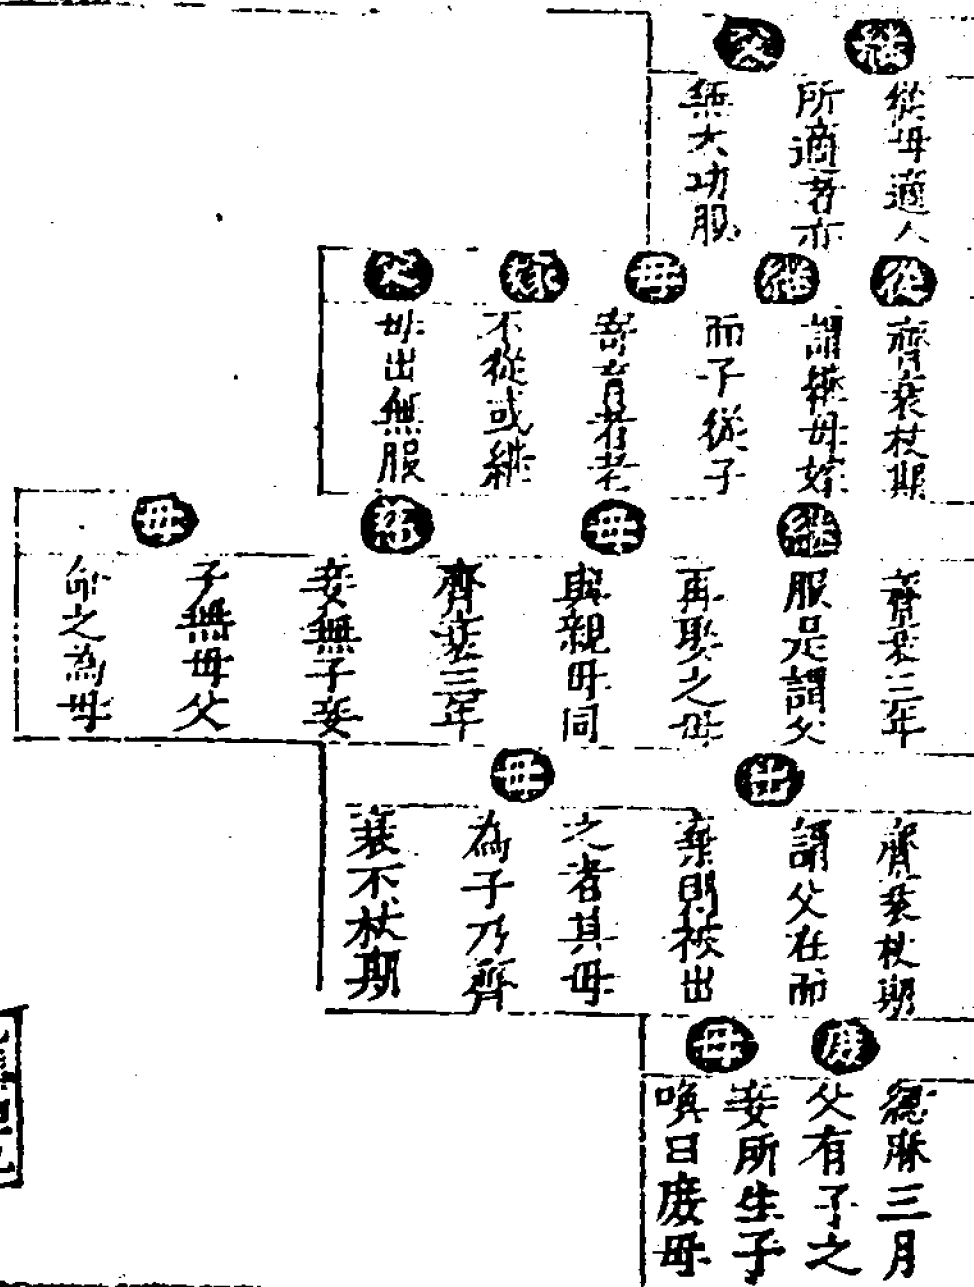 繼父
從母適人
所適者亦
無大功服
從繼母嫁父
齊衰杖期
謂繼母嫁
而子從子
寄育者若
不從或繼
母出無服
繼母
齊衰三年
服是謂父
再娶之母
與親母同
慈母
齊衰三年
妾無子妾
子無母父
命之為母
出母
齊衰杖期
謂父在而
棄間被出
之者其母
為子乃齊
衰不杖期
庶母
緦麻三月
父有子之
妾所生子
喚曰庶母